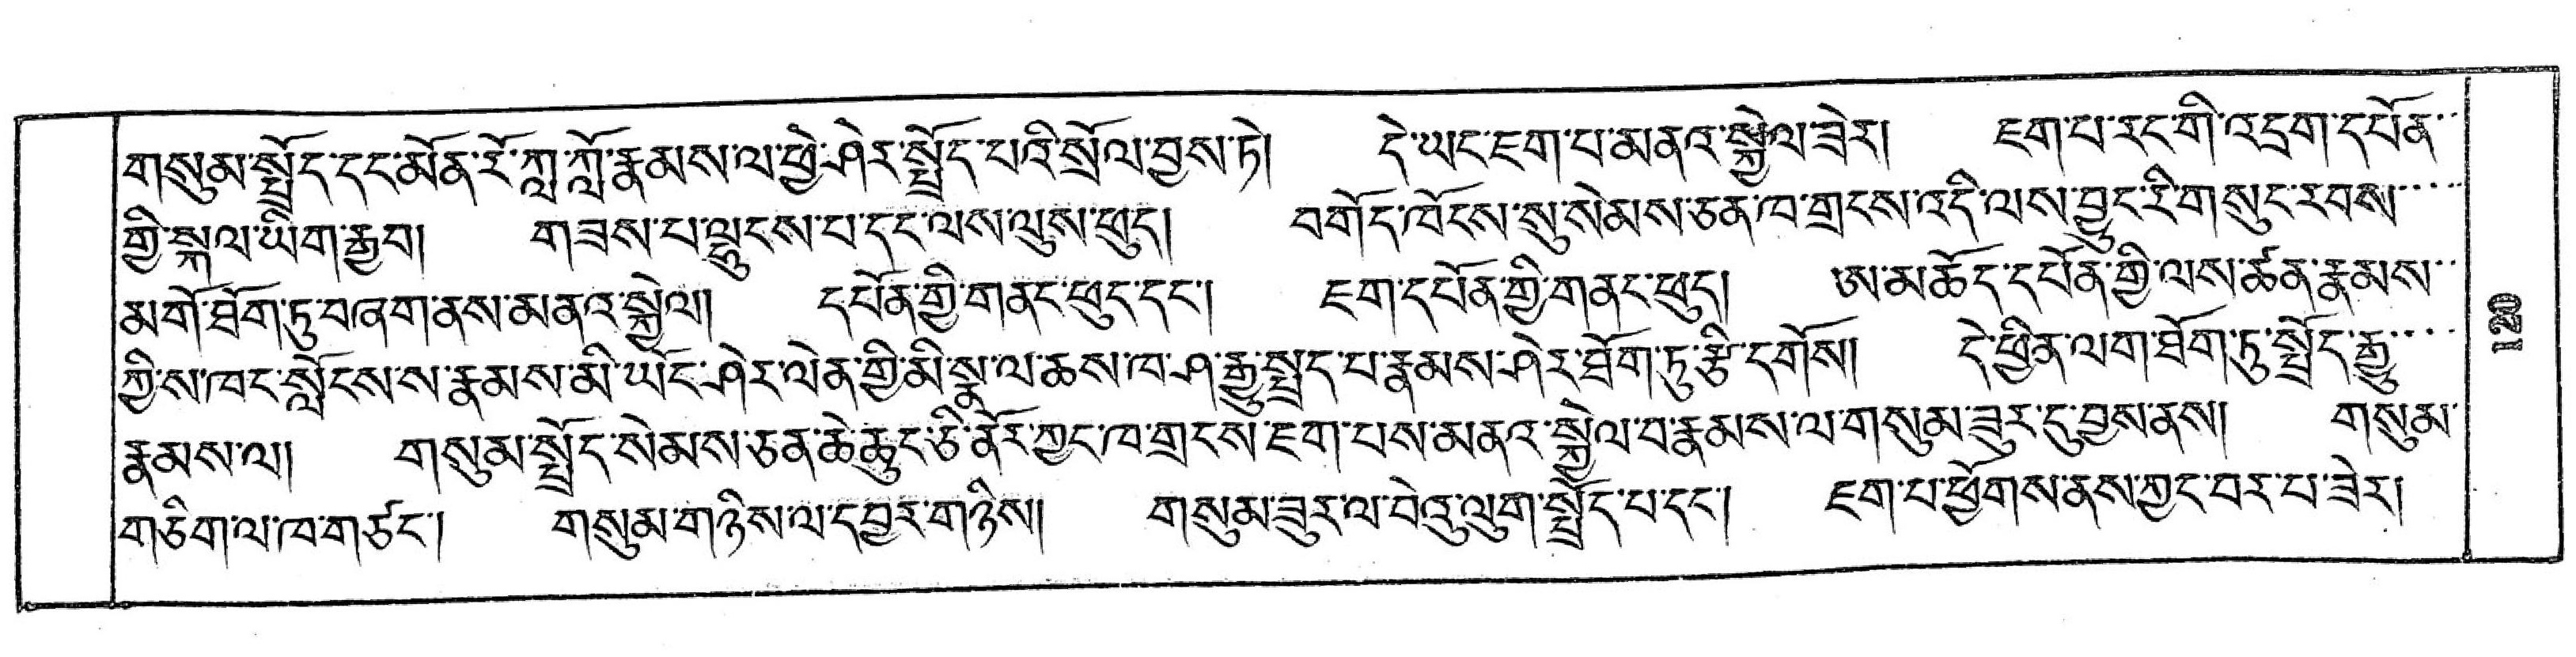 གསུམ་སྤྲོད་དང་མོན་རོ་ཀླ་ཀློ་རྣམས་ལ་ཕྱེ་ཤེར་སྤྲོད་པའི་སྲོལ་བྱས་ཏེ། དེ་ཡང་ཇག་པ་མནའ་སྐྱེལ་ཟེར། ཇག་པ་རང་གི་འདྲག་དཔོན་
གྱི་སྐལ་ཡིག་རྒྱབ། གཟས་པ་ལྷུངས་པ་དང་ལས་ལུས་ཕུད། བགོད་ཁོངས་སུ་སེམས་ཅན་ཁ་གྲངས་འདི་ལས་བྱུང་རིག་སུང་རབས་
མགོ་ཐོག་ཏུ་བཞག་ནས་མནའ་སྐྱེལ། དཔོན་གྱི་གནང་ཕུད་དང་། ཇག་དཔོན་གྱི་གནང་ཕུད། ཨ་མཆོད་དཔོན་གྱི་ལས་ཚན་རྣམས་
ཀྱི་ས་ཁང་སློངས་ས་རྣམས་མི་ཡོང་ཤེར་ལེན་གྱི་མི་སྣ་ལ་ཆས་ཁ་ཤ་རྒྱུ་སྤྲད་པ་རྣམས་ཤེར་ཐོག་ཏུ་རྩི་དགོས། དེ་ཕྱིན་ལག་ཐོག་ཏུ་སྤྲོད་རྒྱུ་
རྣམས་ལ། གསུམ་སྤྲོད་སེམས་ཅན་ཆེ་ཆུང་ཅི་ནོར་ཀྱང་ཁ་གྲངས་ཇག་པས་མནའ་སྐྱེལ་བ་རྣམས་ལ་གསུམ་ཟུར་དུ་བྱས་ནས། གསུམ་
གཅིག་ལ་ཁ་གཙང་། གསུམ་གཉིས་ལ་དབྱར་གཉིས། གསུམ་ཟུར་ལ་བེའུ་ལུག་སྤྲོད་པ་དང་། ཇག་པ་ཕྱོགས་ནས་ཀྱང་བར་པ་ཟེར།